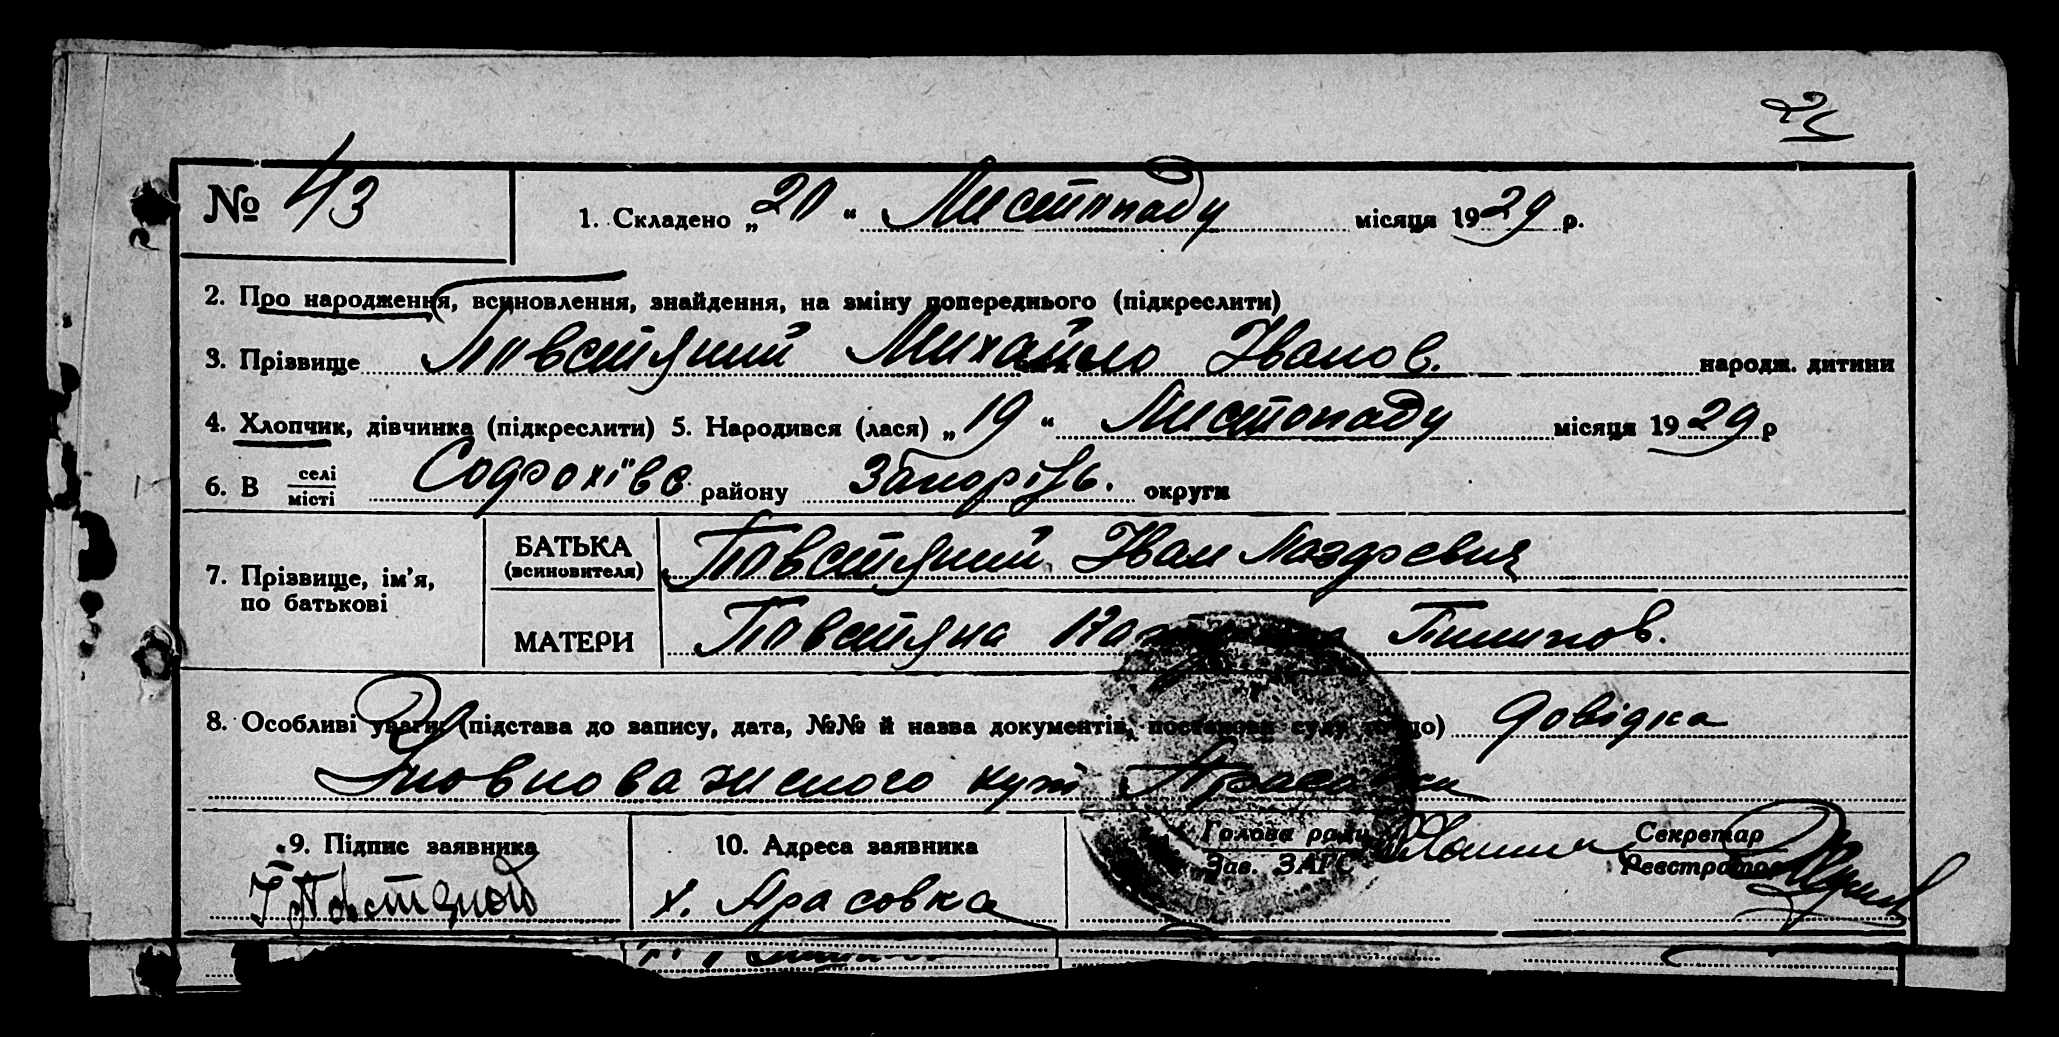 № 43
1. Складено „20“ Листопаду місяця 1929 р.
2. Про народження, всиновлення, знайдення, на зміну попереднього (підкреслити)
3. Прізвище Повстяний Михайло Іванов. народж. дитини
4. Хлопчик, дівчинка (підкреслити) 5. Народився (лася) „19“ Листопаду місяця 1929 р
6. В селі місті району Запорізь. округи
7. Прізвище, ім'я, по батькові
БАТЬКА (всиновителя) Повстяний Іван
МАТЕРИ Повстяна Пилипов.
8. Особливі уваги (підстава до запису, дата, №№ й назва документів, постанова суду то що) довідка
Уповноваженого кут Красовки
9. Підпис заявника
10. Адреса заявника
Голова ради
Зав. ЗАГС
Секретар
Реєстратор
х. Красовка